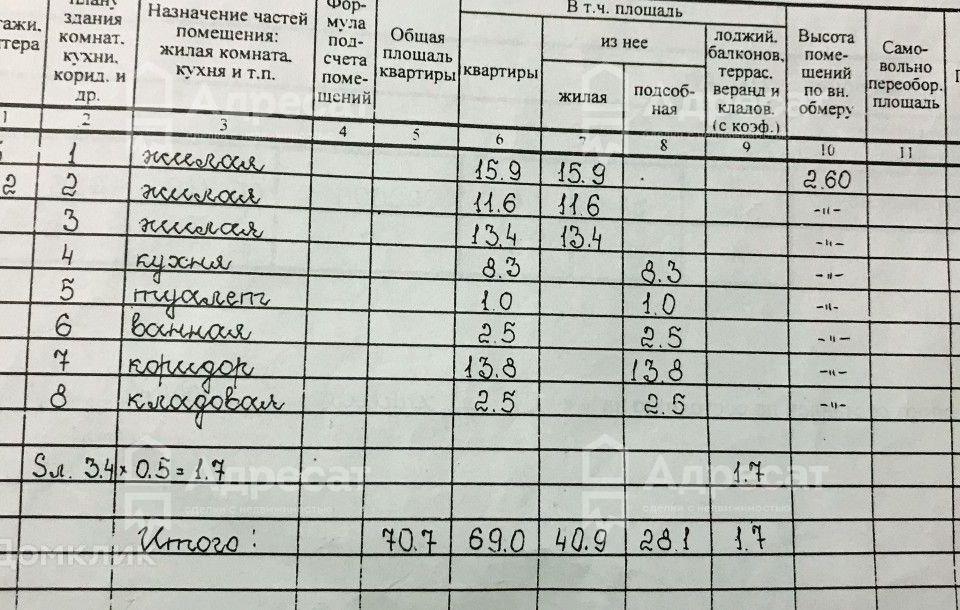 В т.ч. площадь
плану здания комнат. кухни. корид. и др.
Назначение частей помещения: жилая комната. кухня и т.п.
Фор-мула под-счета поме-щений
Общая площадь квартиры
квартиры
из нее
жилая
подсоб-ная
лоджий. балконов, террас. веранд и кладов. (с коэф.)
Высота поме-щений по вн. обмеру
Само-вольно переобор. площадь
1 2 3 4 5 6 7 8 9 10 11
1 жилая 15.9 15.9 2.60
2 2 жилая 11.6 11.6 -"-
3 жилая 13.4 13.4 -"-
4 кухня 8.3 8.3 -"-
5 туалет 1.0 1.0 -"-
6 ванная 2.5 2.5 -"-
7 коридор 13.8 13.8 -"-
8 кладовая 2.5 2.5 -"-
Sл. 3.4 × 0.5 = 1.7 1.7
Итого: 70.7 69.0 40.9 28.1 1.7
Адресат
сделки с недвижимостью
Адресат
Адресат
сделки с недвижимостью
Адресат
сделки с недвижимостью
Домклик